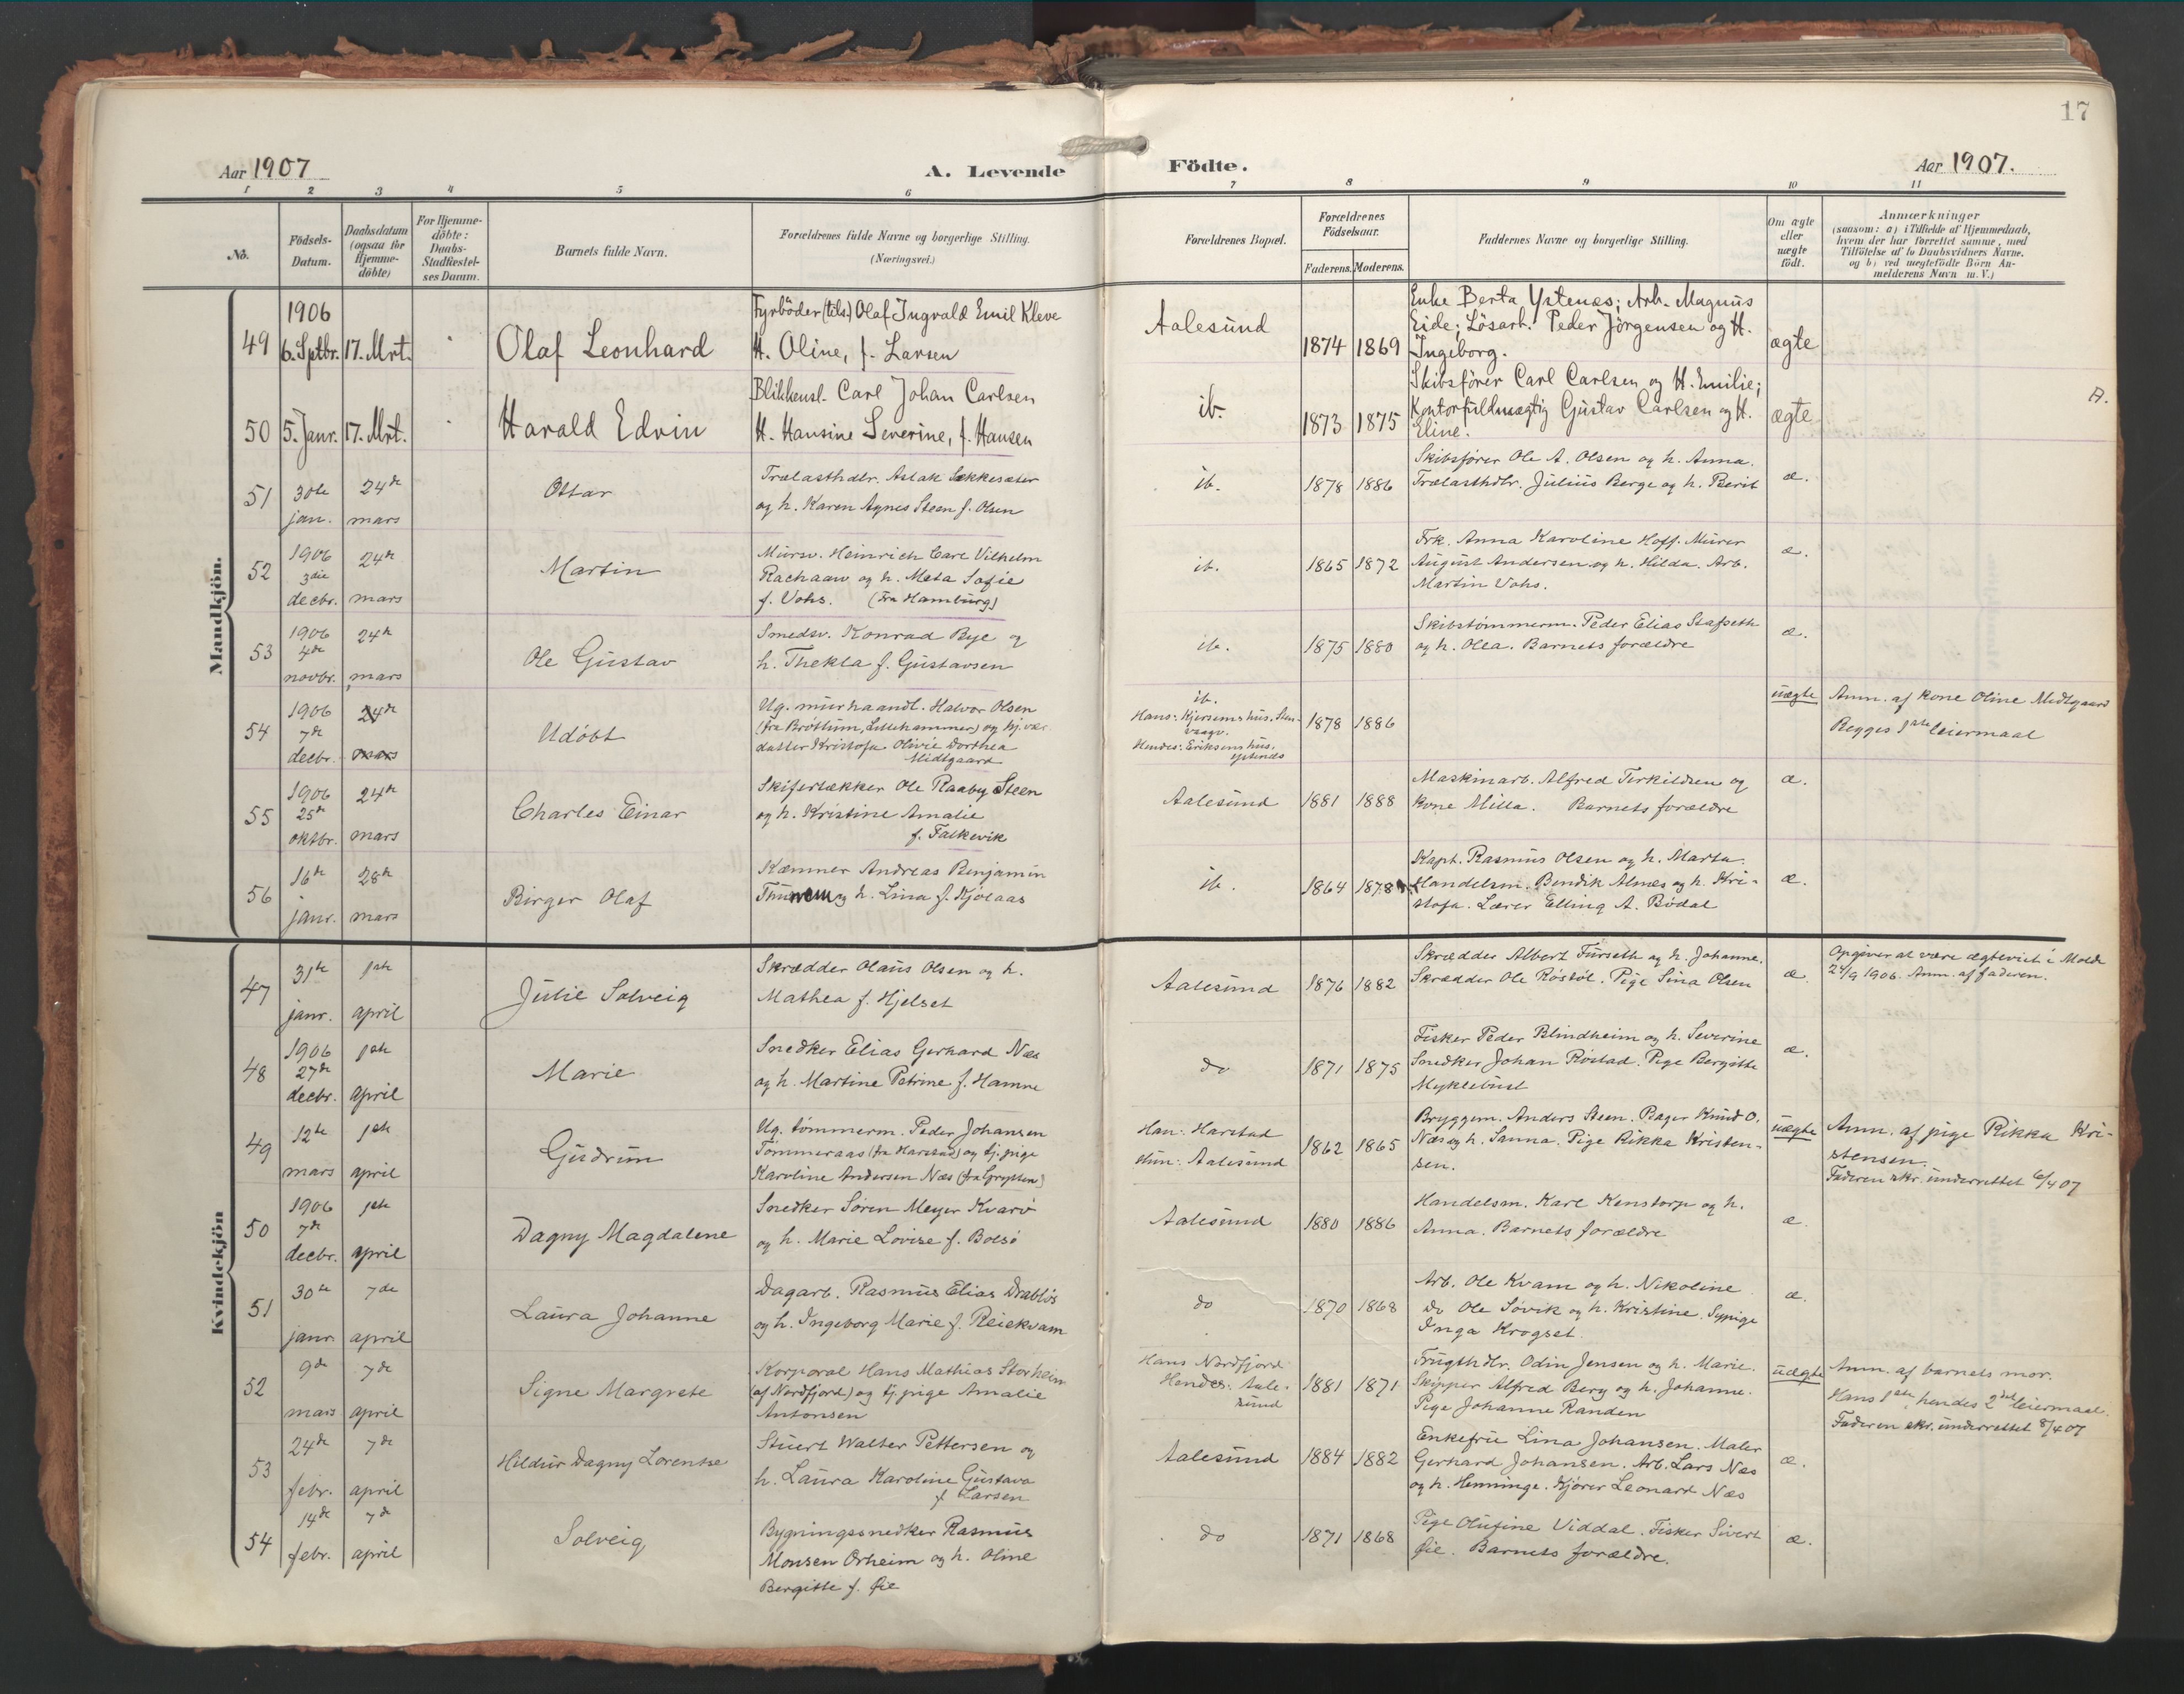 17
Aar 1907
A. Levende Födte.
Aar 1907.
1 2 3 4 5 6 7 8 9 10 11
No.
Födsels-Datum.
Daabsdatum (ogsaa for Hjemmedöbte)
For Hjemmedöbte: Daabs-Stadfæstelses Datum.
Barnets fulde Navn.
Forældrenes fulde Navne og borgerlige Stilling.
(Næringsvei.)
Forældrenes Bopæl.
Forældrenes Födselsaar.
Faderens. Moderens.
Faddernes Navne og borgerlige Stilling.
Om ægte eller uægte födt.
Anmærkninger
(saasom: a) i Tilfælde af Hjemmedaab,
hvem der har forrettet samme, med
Tilföielse af to Daabsvidners Navne.
og b) ved uægtefödte Börn An-
melderens Navn m. V.)
Mandkjön.
49
1906
6. Sptbr.
17. Mrt.
Olaf Leonhard
Fyrböder (tils.) Olaf Ingvald Emil Kleve
H. Oline, f. Larsen
Aalesund
1874 1869
Enke Berta Ystenæs; Arb. Magnus
Eide; Lösarb. Peder Jörgensen og H.
Ingeborg.
ægte
50
5. Janr.
17. Mrt.
Harald Edvin
Blikkensl. Carl Johan Carlsen
H. Hansine Severine, f. Hansen
ib.
1873 1875
Skibsförer Carl Carlsen og H. Emilie;
Kontorfuldmægtig Gustav Carlsen og H.
Eline.
ægte
A.
51
30te
jan.
24de
mars
Ottar
Trælasthdlr. Aslak Sækkesæter
og h. Karen Agnes Steen f. Olsen
ib.
1878 1886
Skibsfører Ole A. Olsen og h. Anna.
Trælasthdlr. Julius Berge og h. Berit
æ.
52
1906
3die
decbr.
24de
mars
Martin
Mursv. Heinrich Carl Vilhelm
Rachaau og h. Meta Sofie
f. Vohs. (Fra Hamburg)
ib.
1865 1872
Frk. Anna Karoline Hoff. Murer
August Andersen og h. Hilda. Arb.
Martin Vohs.
æ.
53
1906
4de
novbr.
24de
mars
Ole Gustav
Smedsv. Konrad Bye og
h. Thekla f. Gustavsen
ib.
1875 1880
Skibstømmerm. Peder Elias Stafseth
og h. Olea. Barnets forældre
æ.
54
1906
7de
decbr.
24de
mars
Udöbt
Ug. murhaandl. Halvor Olsen
(fra Brøttum, Lillehammer) og
datter Kristofa Olivie Dorthea
Midtgaard
ib.
Hans: Kjersems hus. Sten-
vaagv.
Hendes: Eriksens hus.
Ystenæs
1878 1886
uægte
Anm. af kone Oline Midtgaard
Begges 1ste leiermaal
55
1906
25de
oktbr.
24de
mars
Charles Einar
Skifertækker Ole Raaby Steen
og h. Kristine Amalie
f. Falkevik
Aalesund
1881 1888
Maskinarb. Alfred Terkildsen og
kone Milla. Barnets forældre
æ.
56
16de
janr.
28de
mars
Birger Olaf
Kæmner Andreas Benjamin
Thunem og h. Lina f. Kjölaas
ib.
1864 1878
Kapt. Rasmus Olsen og h. Marta.
Handelsm. Bendik Almes og h. Kri-
stofa. Lærer Elling A. Bødal
æ.
Kvindekjön
47
31te
janr.
1ste
april
Julie Solveig
Skrædder Olaus Olsen og h.
Mathea f. Hjelset
Aalesund
1876 1882
Skrædder Albert Furseth og h. Johanne.
Skrædder Ole Røsbøl. Pige Sina Olsen
æ.
Opgiver at være ægteviet i Molde
24/9 1906. Anm. af faderen.
48
1906
27de
decbr.
1ste
april
Marie
Snedker Elias Gerhard Næs
og h. Martine Petrine f. Hamre
do
1871 1875
Fisker Peder Blindheim og h. Severine
Snedker Johan Røstad. Pige Bergitte
Myklebust
æ.
49
12te
mars
1ste
april
Gudrun
Ug. tømmerm. Peder Johansen
Tømmeraas (fra Harstad) og tj. pige
Karoline Andersen Næs (fra Grytten)
Han: Harstad
Hun: Aalesund
1862 1865
Bryggem. Anders Steen. Bager Knud O.
Næs og h. Sanna. Pige Rikka Kristen-
sen.
uægte
Anm. af pige Rikka Kri-
stensen.
Faderen skr. underrettet 6/4 07
50
1906
7de
decbr.
1ste
april
Dagny Magdalene
Snedker Søren Meyer Kvarø
og h. Marie Lovise f. Bolsø
Aalesund
1880 1886
Handelsm. Karl Kenstorp og h.
Anna. Barnets forældre
æ
51
30te
janr
7de
april
Laura Johanne
Dagarb. Rasmus Elias Drabløs
og h. Ingeborg Marie f. Reiekvam
do
1870 1868
Arb. Ole Kvam og h. Nikoline
Do Ole Søvik og h. Kristine. Sypige
Inga Krogset.
æ.
52
9de
mars
7de
april
Signe Margrete
Korporal Hans Mathias Storheim
(af Nordfjord) og tj. pige Amalie
Antonsen
Hans Nordfjord
Hendes: Aale-
sund
1881 1871
Frugthdlr. Odin Jensen og h. Marie.
Skipper Alfred Berg og h. Johanne.
Pige Johanne Randen
uægte
Anm. af barnets mor.
Hans 1ste, hendes 2det leiermaal.
Faderen skr. underrettet 8/4 07
53
24de
febr.
7de
april
Hildur Dagny Lorentse
Stuert Walter Pettersen og
h. Laura Karoline Gustava
f. Larsen
Aalesund
1884 1882
Enkefru Lina Johansen. Maler
Gerhard Johansen. Arb. Lars Næs
og h. Henninge. Kjører Leonard Næs
æ.
54
14de
febr.
7de
april
Solveig
Bygningssnedker Rasmus
Monsen Orheim og h. Oline
Bergitte f. Øie
do
1871 1868
Pige Olufine Viddal. Fisker Sivert
Øie. Barnets forældre.
æ.